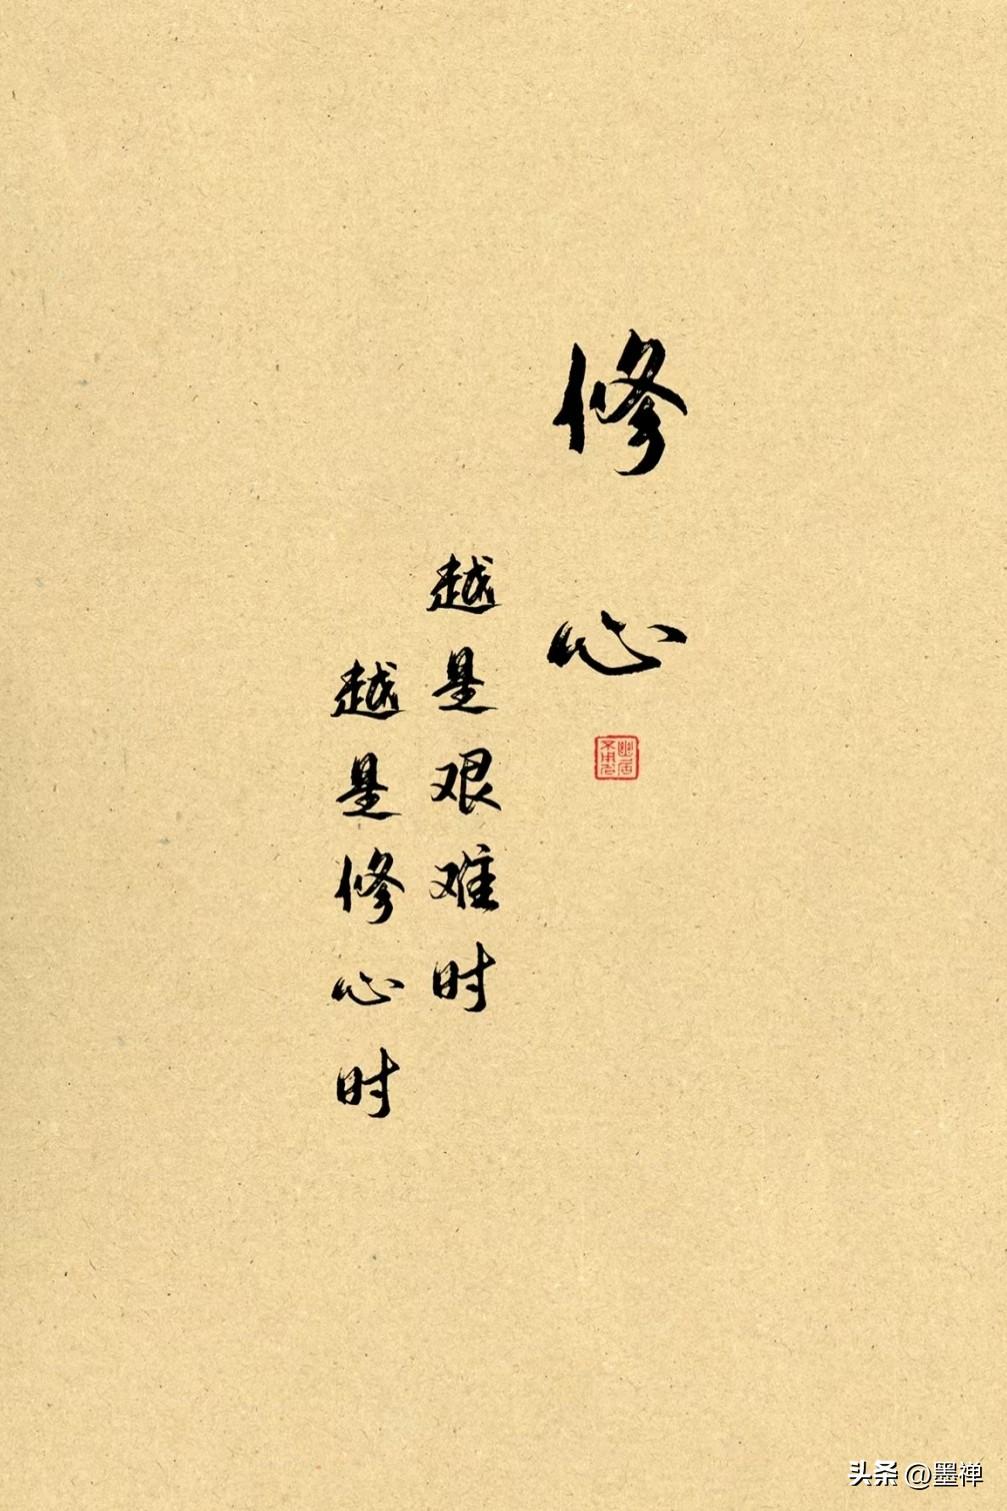 修心
越是艰难时
越是修心时
头条 @墨禅